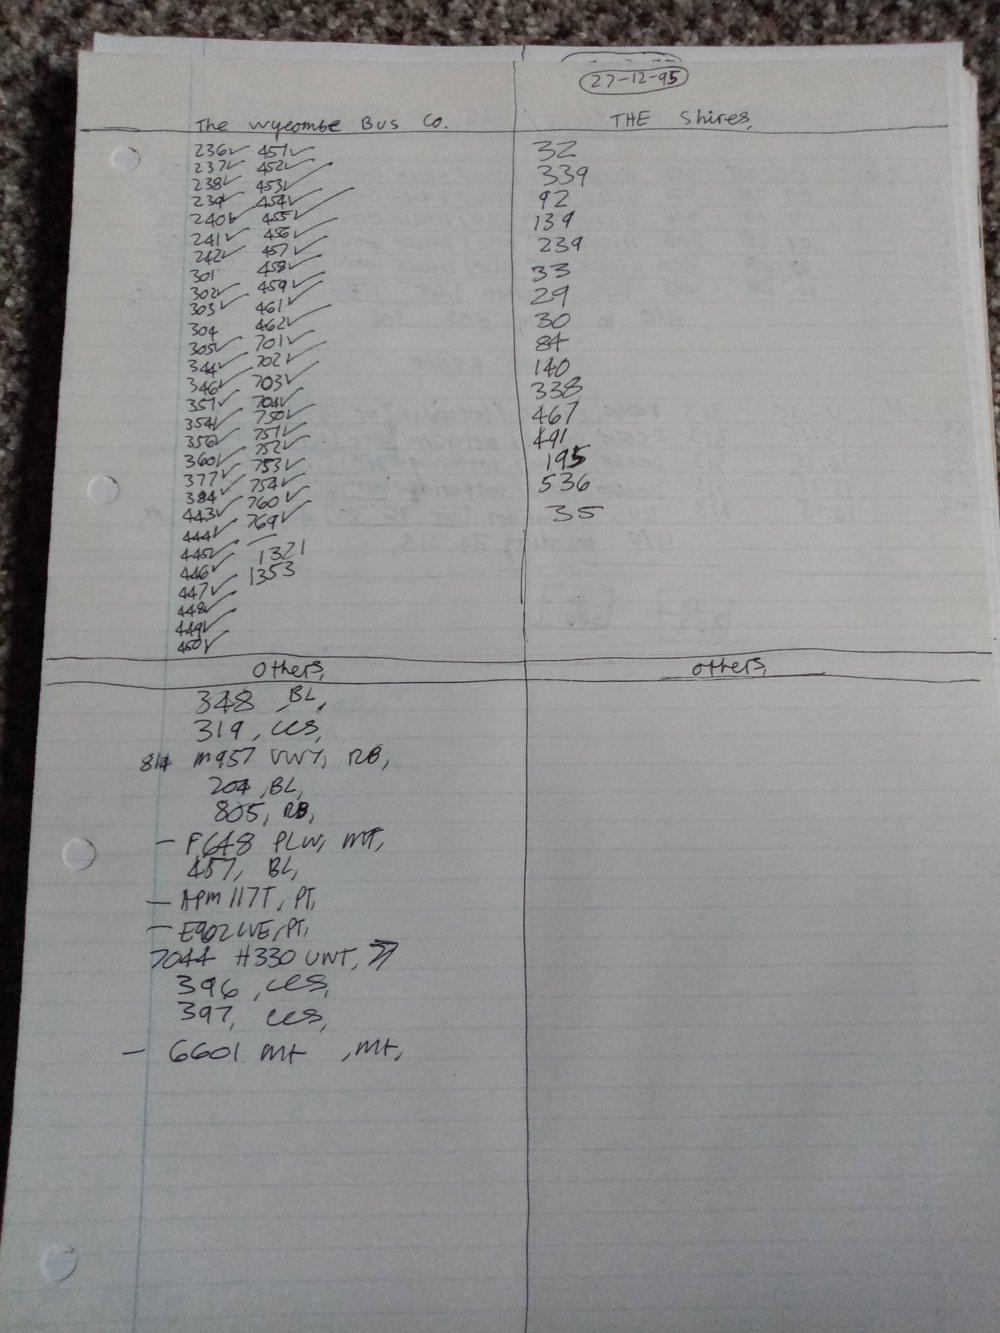 27-12-95
The Wycombe Bus Co.
236✓ 451✓
237✓ 452✓
238✓ 453✓
239✓ 454✓
240✓ 455✓
241✓ 456✓
242✓ 457✓
301 458✓
302✓ 459✓
303✓ 461✓
304 462✓
305✓ 701✓
344✓ 702✓
346✓ 703✓
351✓ 704✓
354✓ 750✓
356✓ 751✓
360✓ 752✓
377✓ 753✓
384✓ 754✓
443✓ 760✓
444✓ 769✓
445✓ 1321
446✓ 1353
447✓
448✓
449✓
450✓
THE Shires,
32
339
92
139
239
33
29
30
84
140
338
467
491
195
536
35
Others,
348, BL,
319, CCS,
814 M957 VWY, RB,
204, BL,
805, RB,
- F648 PLW, MT,
457, BL,
- APM 117T, PT,
- PT,
7044 H330 UWT,
396, CCS,
397, CCS,
- 6601 MT, MT,
Others,